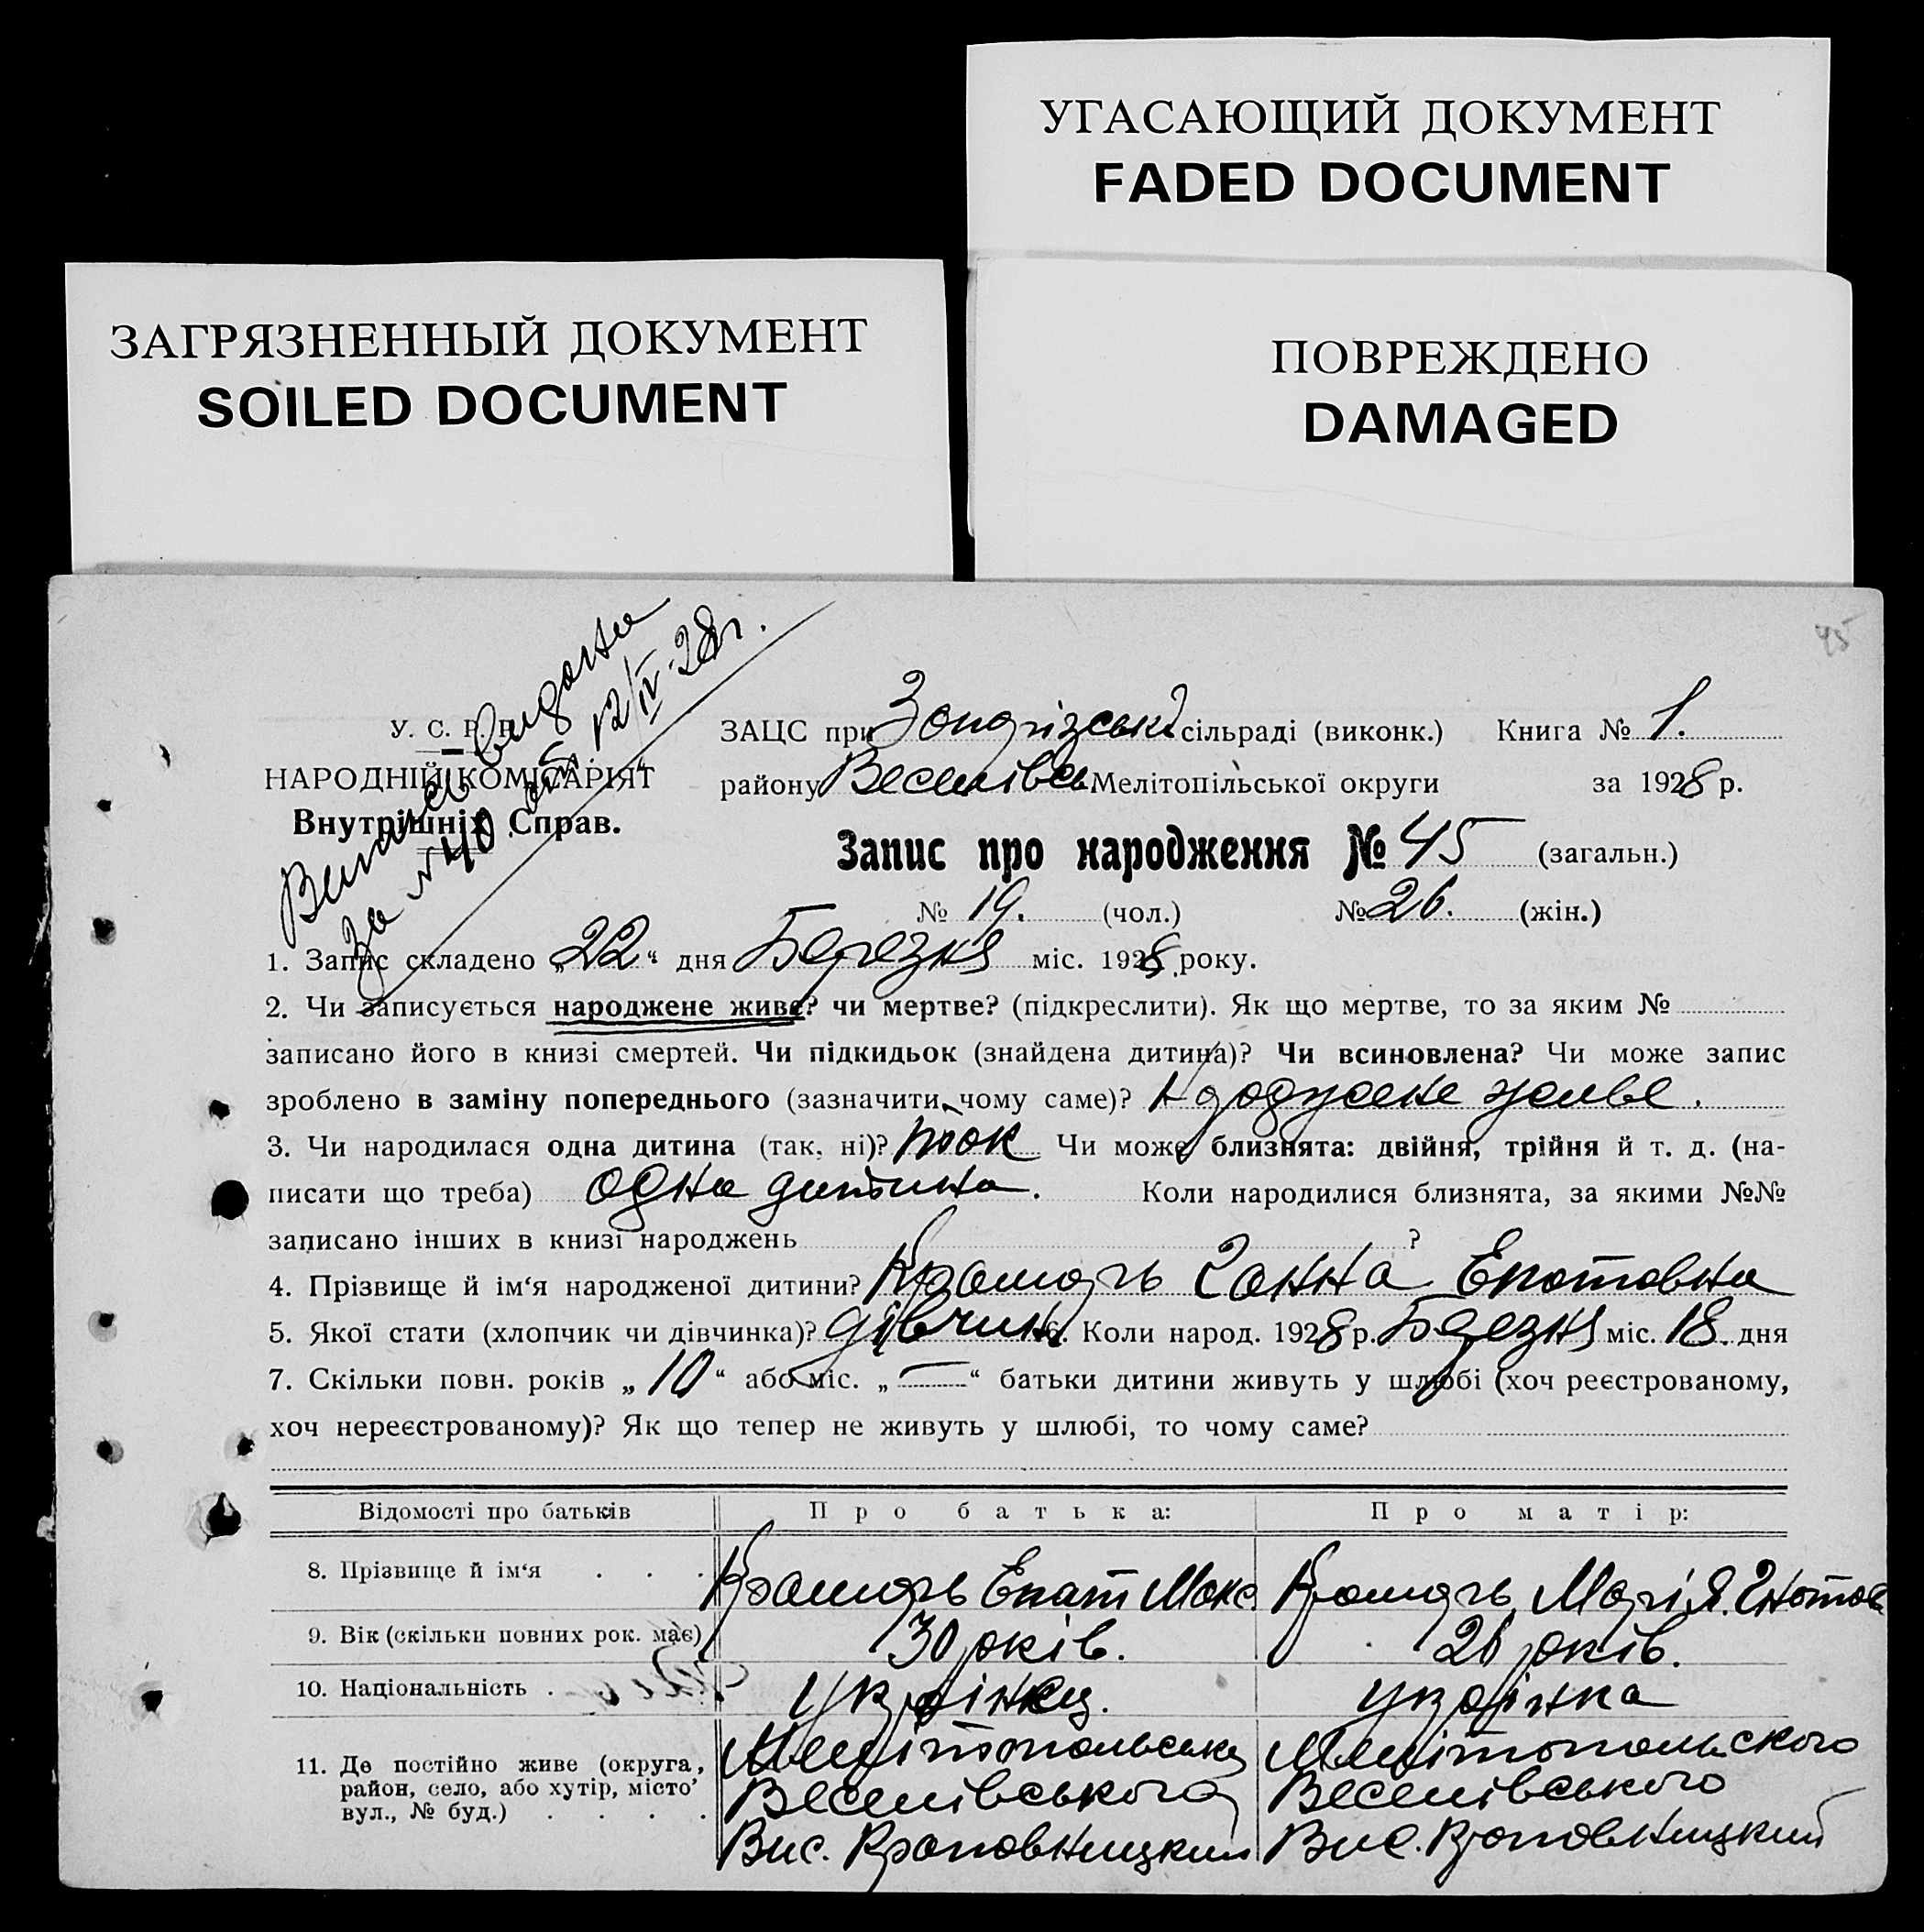 УГАСАЮЩИЙ ДОКУМЕНТ
FADED DOCUMENT
ЗАГРЯЗНЕННЫЙ ДОКУМЕНТ
SOILED DOCUMENT
ПОВРЕЖДЕНО
DAMAGED
45
Виписка видана
За №40 від 12/IV-28г.
У. С. Р. Р.
НАРОДНІЙ КОМІСАРІЯТ
Внутрішніх Справ.
ЗАЦС при сільраді (виконк.) Книга № 1.
району Веселівсь Мелітопільської округи за 1928 р.
Запис про народження № 45 (загальн.)
№ 19. (чол.) № 26. (жін.)
1. Запис складено „22“ дня Березня міс. 1928 року.
2. Чи записується народжене живе? чи мертве? (підкреслити). Як що мертве, то за яким №
записано його в книзі смертей. Чи підкидьок (знайдена дитина)? Чи всиновлена? Чи може запис
зроблено в заміну попереднього (зазначити, чому саме)? живе.
3. Чи народилася одна дитина (так, ні)? так Чи може близнята: двійня, трійня й т. д. (на-
писати що треба) одна дитина. Коли народилися близнята, за якими №№
записано інших в книзі народжень ?
4. Прізвище й ім‘я народженої дитини? Крамарь Ганна Епатовна
5. Якої стати (хлопчик чи дівчинка)? дівчин 6. Коли народ. 1928 р. Березня міс. 18. дня
7. Скільки повн. років „10“ або міс. „—“ батьки дитини живуть у шлюбі (хоч реєстрованому,
хоч нереєстрованому)? Як що тепер не живуть у шлюбі, то чому саме?
Відомості про батьків Про батька: Про матір:
8. Прізвище й ім‘я . . . Крамарь Епат Макс. Крамарь Марія.
9. Вік (скільки повних рок. має) 30 років. 26 років.
10. Національність . українец. українка
11. Де постійно живе (округа, Мелітопольська Мелітопольского
район, село, або хутір, місто’ Веселівського Веселівського
вул., № буд.) . . . . Вис. Кроповницкий Вис. Кроповницкий